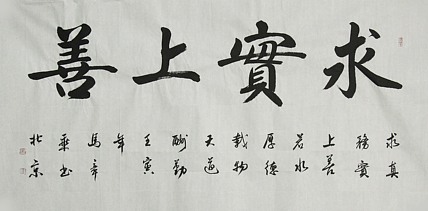 求實上善
求真
務實
上善
若水
厚德
載物
天道
酬勤
壬寅
年
馬辛
乘书
北京